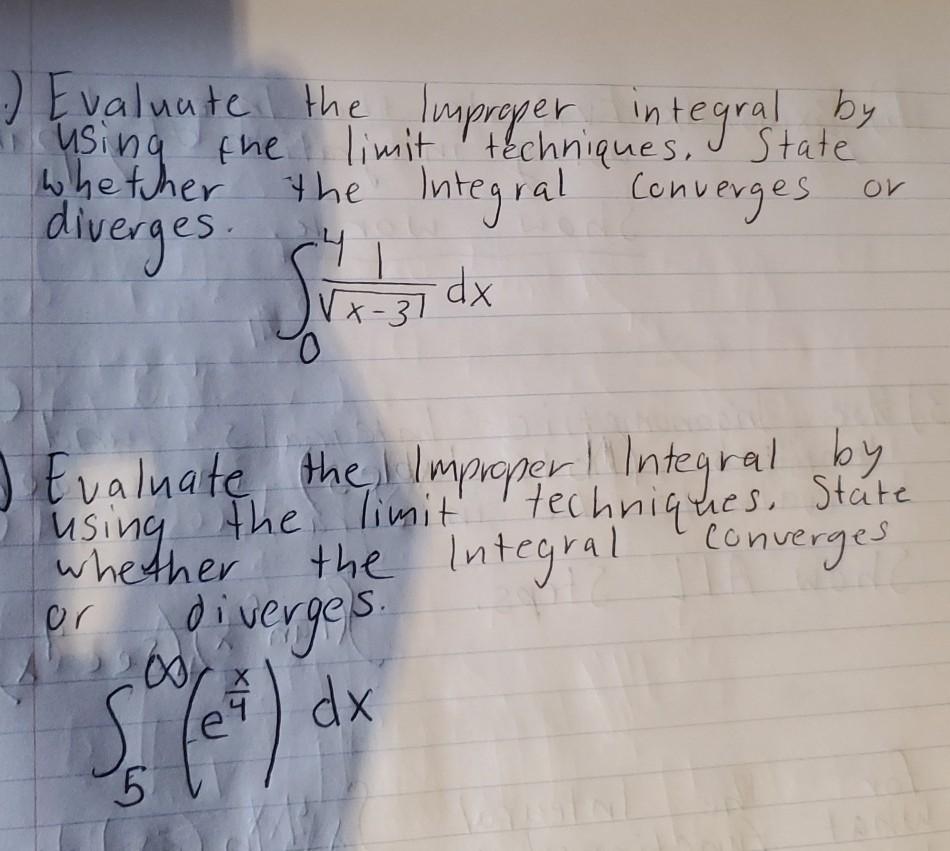 .) Evaluate the Improper integral by
using the limit techniques. State
whether the Integral Converges or
diverges.
∫₀⁴ 1/√(x-3) dx
) Evaluate the Improper Integral by
using the limit techniques. State
whether the Integral Converges
or diverges.
∫₅^∞ (e^(x/4)) dx